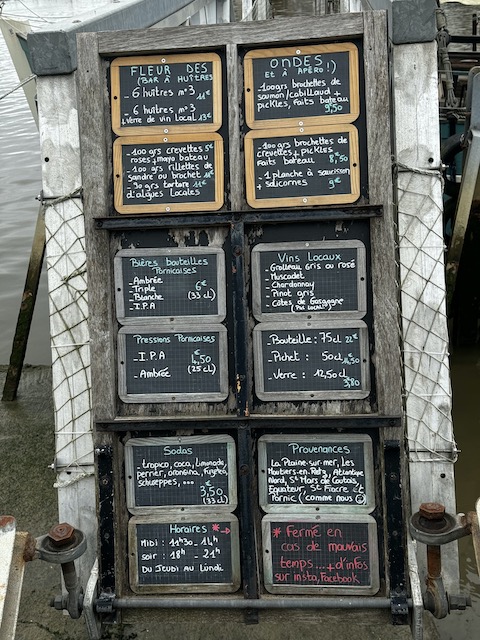 FLEUR DES
(BAR À HUÎTRES
- 6 huîtres n°3 11€
- 6 huîtres n°3
+ Verre de vin Local 13€
ONDES
ET À APÉRO !)
- 100grs brochettes de
saumon/cabillaud +
pickles, faits bateau
9,50
- 100 grs crevettes
roses + mayo bateau
- 100 grs rillettes de
sandre ou brochet 11€
- 90 grs tartare 11€
d'algues Locales
- 100 grs brochettes de
crevettes + pickles
faits bateau 8,50
- 1 planche à saucisson
+ salicornes 9€
Bières bouteilles
Pornicaises
- Ambrée
- Triple 6€
- Blanche (33 cl)
- I.P.A
Vins Locaux
- Grolleau Gris ou rosé
- Muscadet
- Chardonnay
- Pinot gris
- Côtes de Gascogne
(Pas Local)
Pressions Pornicaises
- I.P.A 4,50
(25 cl)
- Ambrée
- Bouteille : 75cl 22€
- Pichet : 50cl 14,50
- Verre : 12,50cl
3,80
Sodas
- tropico, coca, limonade,
perrier, orangina, fuzetea,
schweppes, ...
3,50
(33 cl)
Provenances
La Plaine-sur-mer, les
Moutiers-en-Retz, Atlantique
Nord, St Mars de Coutais,
Equateur, St Fiacre et
Pornic (comme nous ☺)
Horaires *→
Midi : 11h30 - 14h
soir : 18h - 21h
Du Jeudi au Lundi
* Fermé en
cas de mauvais
temps... + d'infos
sur insta, Facebook